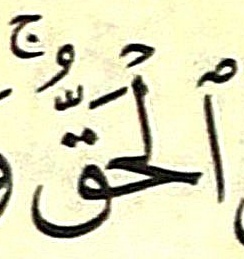 ٱلْحَقُّ ۚ